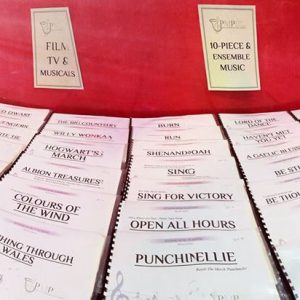 PMP
FILM
TV &
MUSICALS
PMP
10-PIECE &
ENSEMBLE
MUSIC
THE BIG COUNTRY
WILLY WONKA
HOGWART'S
MARCH
ALBION TREASURES
COLOURS OF
THE WIND
THROUGH
WALES
BURN
RUN
SHENANDOAH
SING
SING FOR VICTORY
OPEN ALL HOURS
PUNCHINELLIE
LORD OF THE
DANCE
HAVEN'T MET
YOU YET
A GAELIC
BE
BE THOU